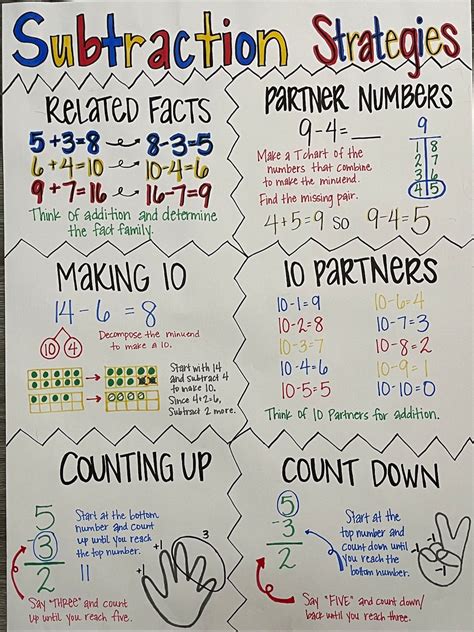 Subtraction Strategies
RELATED FACTS
5+3=8 8-3=5
6+4=10 10-4=6
9+7=16 16-7=9
Think of addition and determine
the fact family.
PARTNER NUMBERS
9-4=__
Make a T chart of the
numbers that combine
to make the minuend.
Find the missing pair.
9
1 8
2 7
3 6
4 5
4+5=9 so 9-4=5
MAKING 10
14-6=8
10 4
Decompose the minuend
to make a 10.
Start with 14
and subtract 4
to make 10.
Since 4+2=6,
Subtract 2 more.
10 PARTNERS
10-1=9 10-6=4
10-2=8 10-7=3
10-3=7 10-8=2
10-4=6 10-9=1
10-5=5 10-10=0
Think of 10 Partners for addition.
COUNTING UP
5
-3
2
Start at the bottom
number and count
up until you reach
the top number.
+1
+1
3
Say "THREE" and count
up until you reach five.
COUNT DOWN
5
-3
2
Start at the
top number and
count down until
you reach the
bottom number.
Say "FIVE" and count down/
back until you reach three.